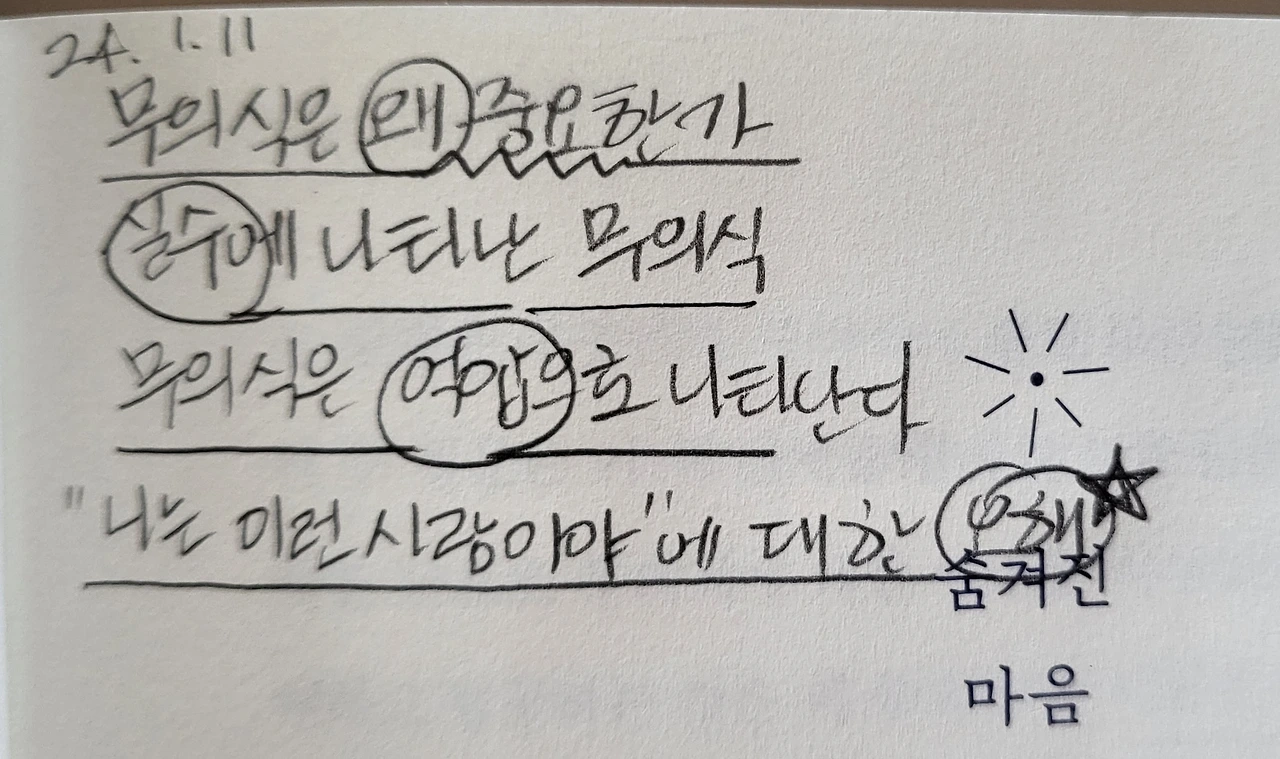 24. 1. 11
무의식은 왜 중요한가
실수에 나타난 무의식
무의식은 억압으로 나타난다
"나는 이런 사람이야"에 대한 오해
숨겨진
마음